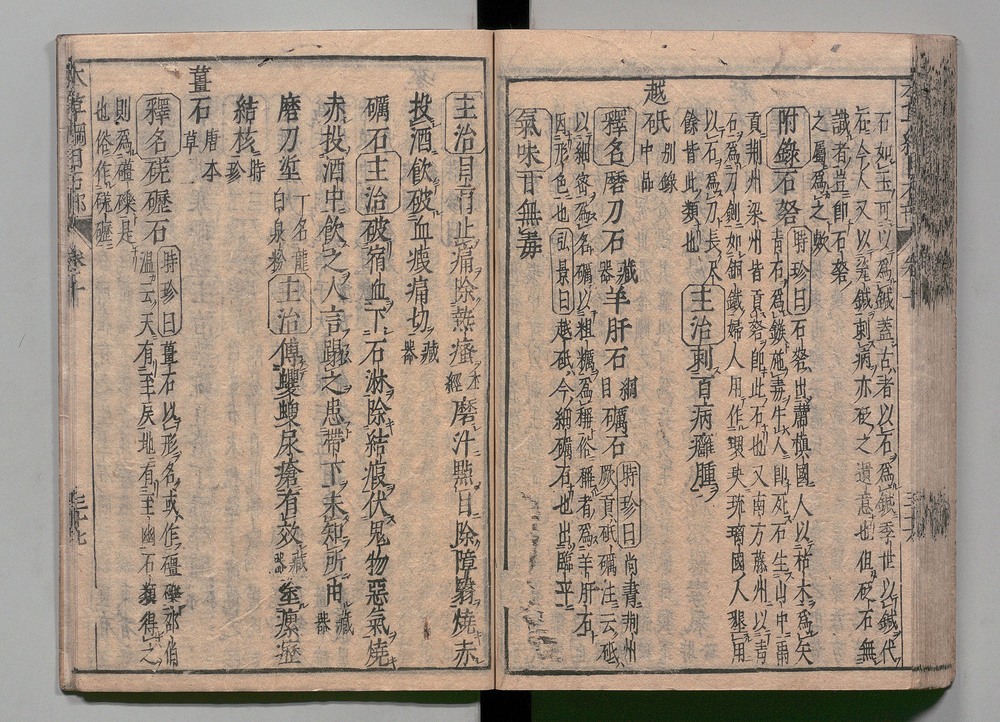 石如玉可以為鍼蓋古者以石為鍼季世以鍼代
石今人又以瓷鍼刺病亦砭之遺意也但砭石無
識者豈即石砮
之屬為之歟
附錄石砮時珍曰石砮出肅慎國人以枯木為矢
青石為鏃施毒中人即死石生山中禹
貢荊州梁州皆貢砮即此石也又南方藤州以青
石為刀劍如銅鐵婦人用作環玦琉璃國人墾田
以石為刀長尺
餘皆此類也
主治刺百病癰腫
越砥別錄中品
釋名磨刀石藏器羊肝石綱目礪石時珍曰尚書荊州
厥貢砥礪注云砥
以細密為名礪以粗糲為稱俗稱者為羊肝石
因形色也弘景曰越砥今細礪石也出臨平
氣味甘無毒
主治目盲止痛除熱瘙本經磨汁點目除障瞖燒赤
投酒飲破血瘕痛切藏器
礪石主治破宿血下石淋除結瘕伏鬼物惡氣燒
赤投酒中飲之人言蹋之患帶下未知所由藏器
磨刀垽一名龍白泉粉主治傅蠼螋尿瘡有效藏器塗瘰癧
結核時珍
薑石唐本草
釋名䃈礰石時珍曰薑石以形名或作礓礫邵伯
溫云天有至戾地有至幽石類得之
則為礓礫是
也俗作䃈礰